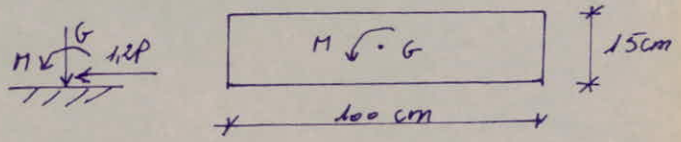 G
M 1,2P
M G 15cm
100 cm